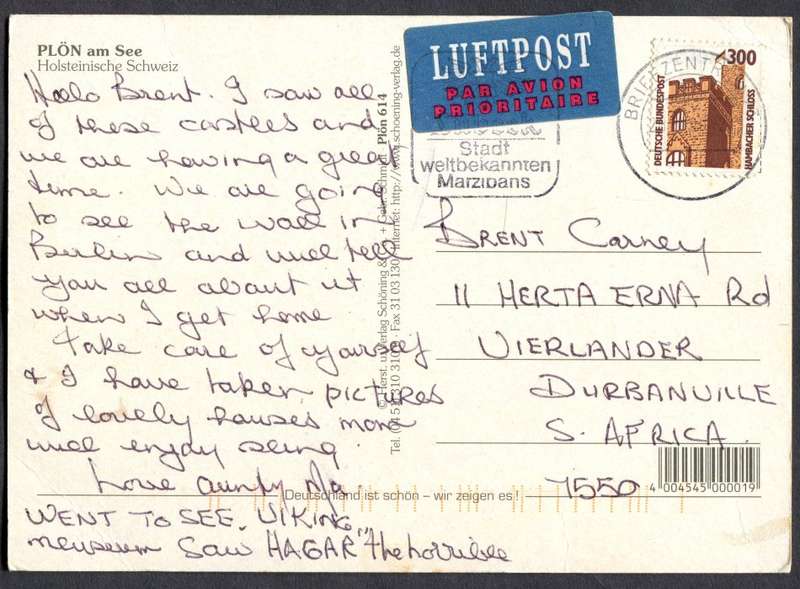 PLÖN am See
Holsteinische Schweiz
Hello Brent. I saw all
of these castles and
we are having a great
time. We are going
to see the wall in
Berlin and will tell
you all about it
when I get home
Take care of yourself
& I have taken pictures
of lovely houses mom
will enjoy seeing.
Love aunty
WENT TO SEE VIKING
meuseum Saw HAGAR "the horrible
Plön 614
http://www.schoening-verlag.de
Tel. (04 51) 310 310 · Fax 31 03 130 · Internet:
LUFTPOST
PAR AVION
PRIORITAIRE
Stadt
weltbekannten
Marzipans
BRIEFZENTR
300
DEUTSCHE BUNDESPOST
HAMBACHER SCHLOSS
BRENT Carney
11 HERTA ERNA Rd
VIERLANDER
DURBANVILLE
S. AFRICA.
7550
4 004545 000019
Deutschland ist schön – wir zeigen es!